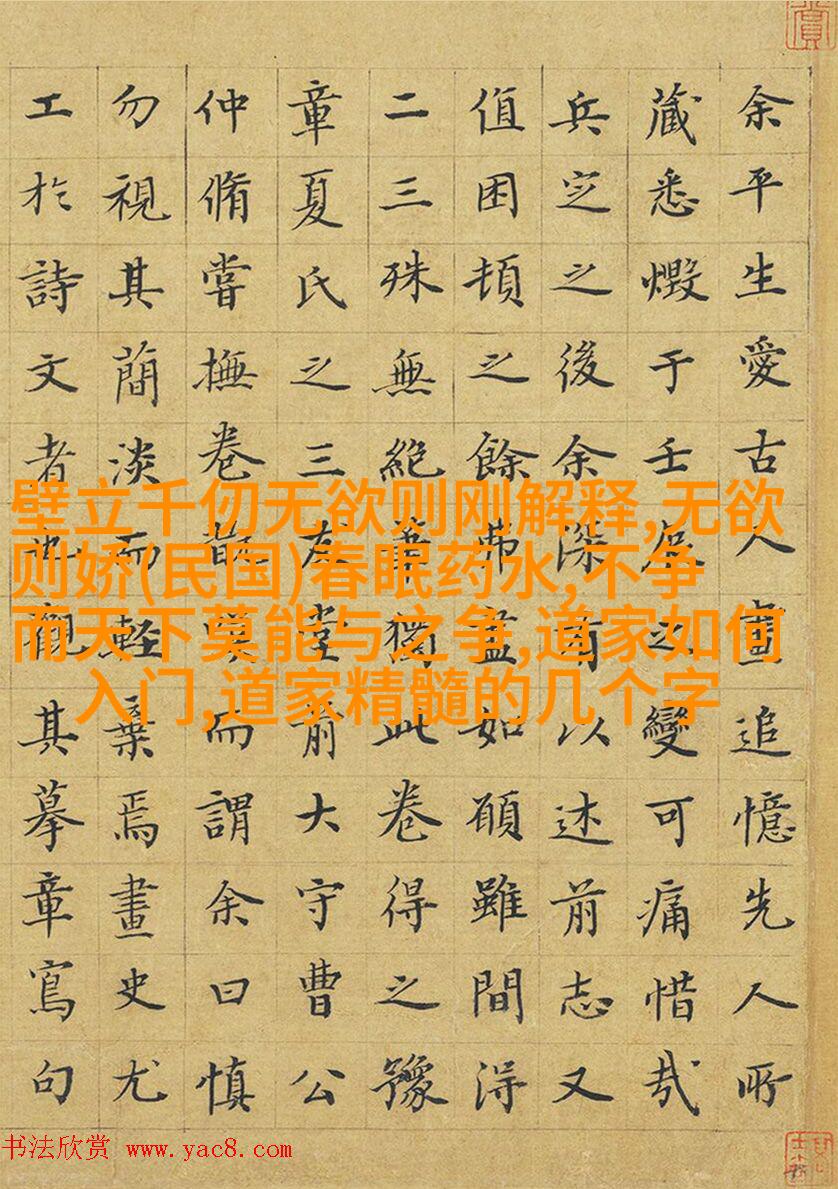 余平生愛古人畫追憶先人所
藏悉燬于壬辰之變可痛惜哉
兵定之後余深有以述前志又
值困頓之餘弗盡如願雖間得
二三殊無絕筆獨此卷得之豫
章夏氏之三友堂前大守曹公
仲脩嘗撫卷嘆而謂余曰慎
勿視其簡淡而輕棄焉畫史尤
工於詩文者也觀其摹章寫句
壁立千仞无欲则刚解释,无欲
则娇(民国)春眠药水,不争
而天下莫能与之争,道家如何
入门,道家精髓的几个字
书法欣赏 www.yac8.com